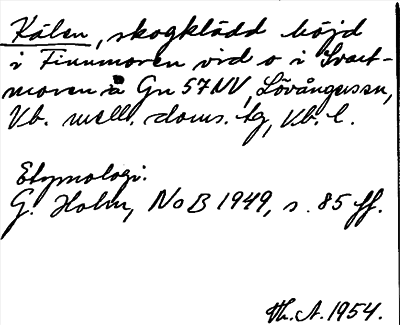 Kälen, skogklädd höjd
i Finnmoren vid o i Svart-
moren å Gn 57 NV, Lövångers sn,
Vb. mell. doms. tg, Vb. l.
Etymologi:
G. Holm, NoB 1949, s. 85 ff.
Th. A. 1954.